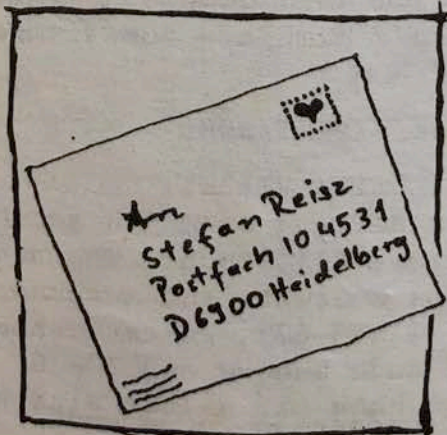 An
Stefan Reisz
Postfach 104531
D6900 Heidelberg